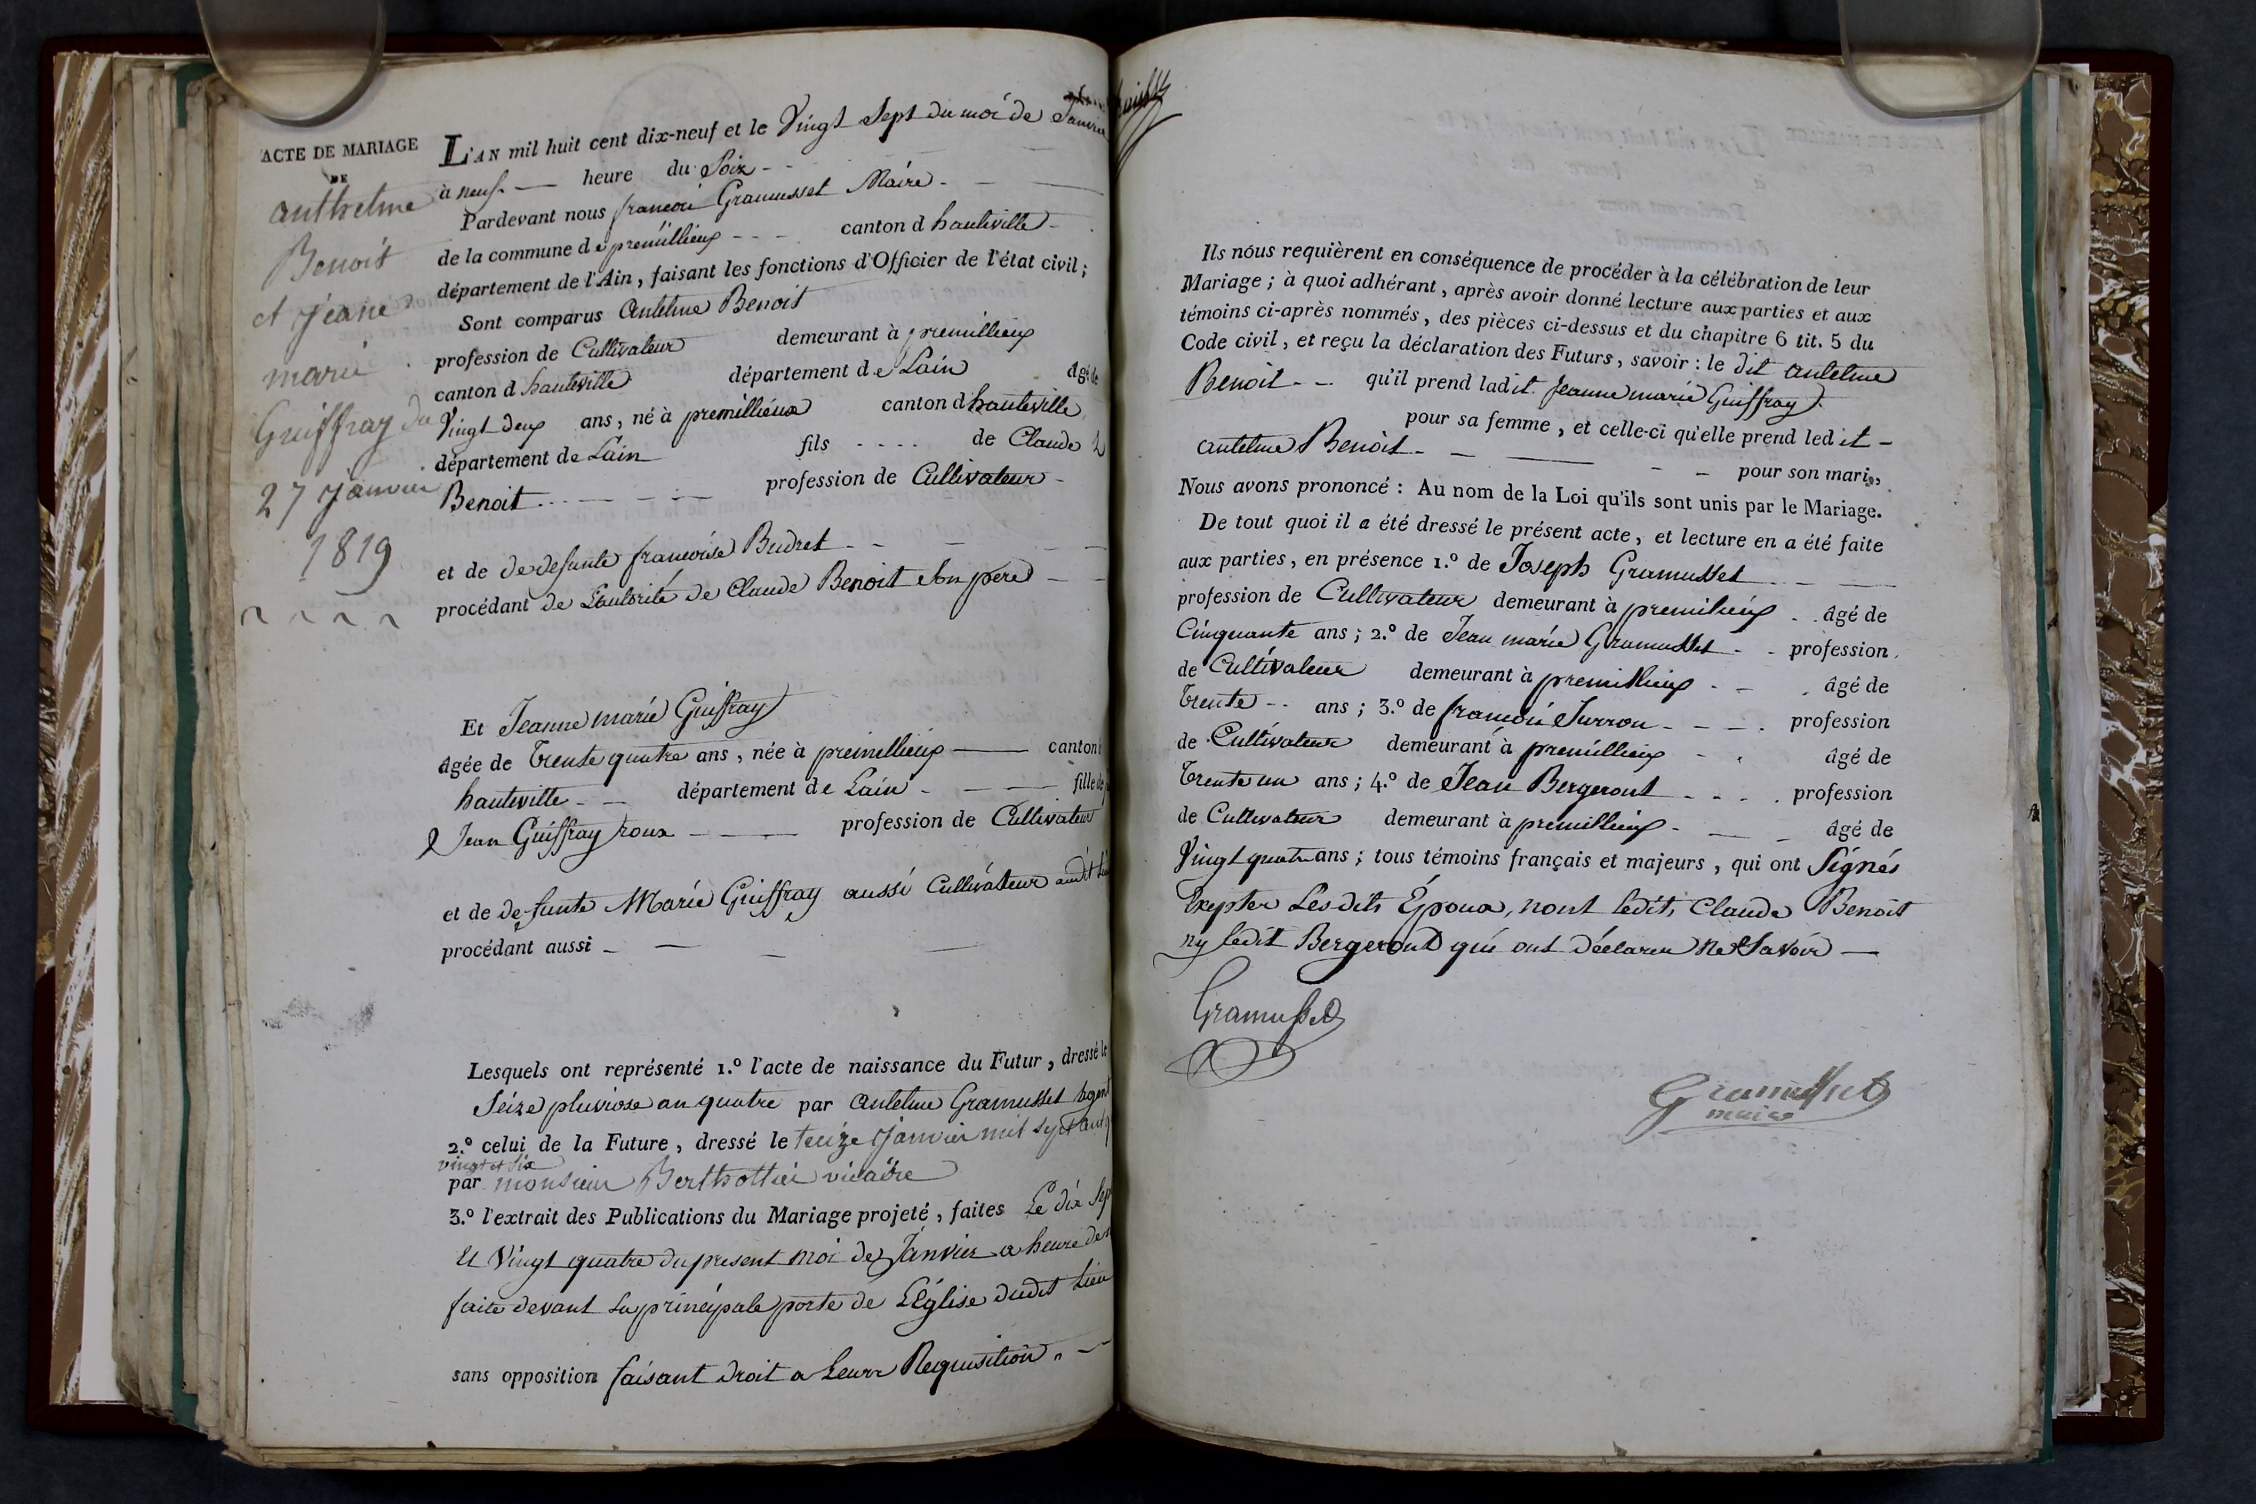 ACTE DE MARIAGE
DE
anthelme
Benoit
et jeane
marie
Guiffray du
27 janvier
1819
L'AN mil huit cent dix-neuf et le Vingt Sept du moi de Janvier
à neuf heure du Soir
Pardevant nous francoi Gramusset Maire
de la commune de premillieux canton d hauteville
département de l'Ain, faisant les fonctions d'Officier de l'état civil;
Sont comparus antelme Benoit
profession de Cultivateur demeurant à premillieux
canton d hauteville département de Lain âgé de
Vingt deux ans, né à premillieux canton d hauteville
département de Lain fils de Claude
Benoit profession de Cultivateur
et de de defunte francoise Budret
procédant de Lautorité de Claude Benoit Son pere
Et Jeanne marie Guiffray
âgée de Trente quatre ans, née à premillieux canton
hauteville département de Lain fille de
Jean Guiffray roux profession de Cultivateur
et de defunte Marie Guiffray aussi Cultivateur audit
procédant aussi
Lesquels ont représenté 1.º l'acte de naissance du Futur, dressé le
Seize pluviose an quatre par antelme Gramusset agent
2.º celui de la Future, dressé le treize janvier mil sept cent
vingt et six
par monsieur Berthottier vicaire
3.º l'extrait des Publications du Mariage projeté, faites Le dix Sep
Et Vingt quatre du present moi de Janvier a heure de
faite devant la principale porte de LEglise dudit Lieu
sans opposition faisant droit a Leurr Requisition
Ils nous requièrent en conséquence de procéder à la célébration de leur
Mariage; à quoi adhérant, après avoir donné lecture aux parties et aux
témoins ci-après nommés, des pièces ci-dessus et du chapitre 6 tit. 5 du
Code civil, et reçu la déclaration des Futurs, savoir: le dit antelme
Benoit qu'il prend ladit Jeanne marie Guiffray
pour sa femme, et celle-ci qu'elle prend ledit
antelme Benoit pour son mari,
Nous avons prononcé: Au nom de la Loi qu'ils sont unis par le Mariage.
De tout quoi il a été dressé le présent acte, et lecture en a été faite
aux parties, en présence 1.º de Joseph Gramusset
profession de Cultivateur demeurant à premilieux âgé de
Cinquante ans; 2.º de Jean marie Gramusset profession
de Cultivateur demeurant à premillieux âgé de
trente ans; 3.º de francoi Surron profession
de Cultivateur demeurant à premillieux âgé de
Trente un ans; 4.º de Jean Bergeront profession
de Cultivateur demeurant à premillieux âgé de
Vingt quatre ans; tous témoins français et majeurs, qui ont Signés
Exepter Lesdits Époux, nont ledit Claude Benoit
ny ledit Bergeront qui ont déclarer ne Savoir
Gramusset
Gramusset
maire